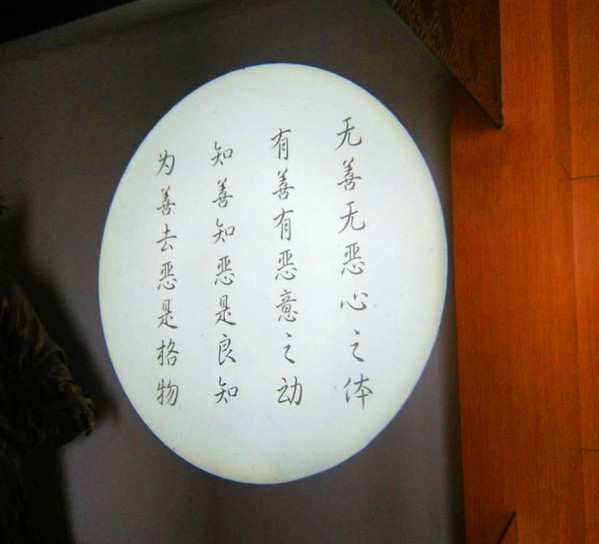 无善无恶心之体
有善有恶意之动
知善知恶是良知
为善去恶是格物